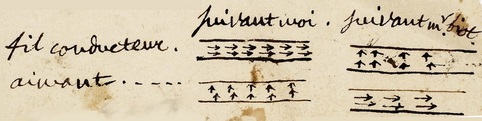 suivant moi. suivant mr. biot
fil conducteur.
aimant.....